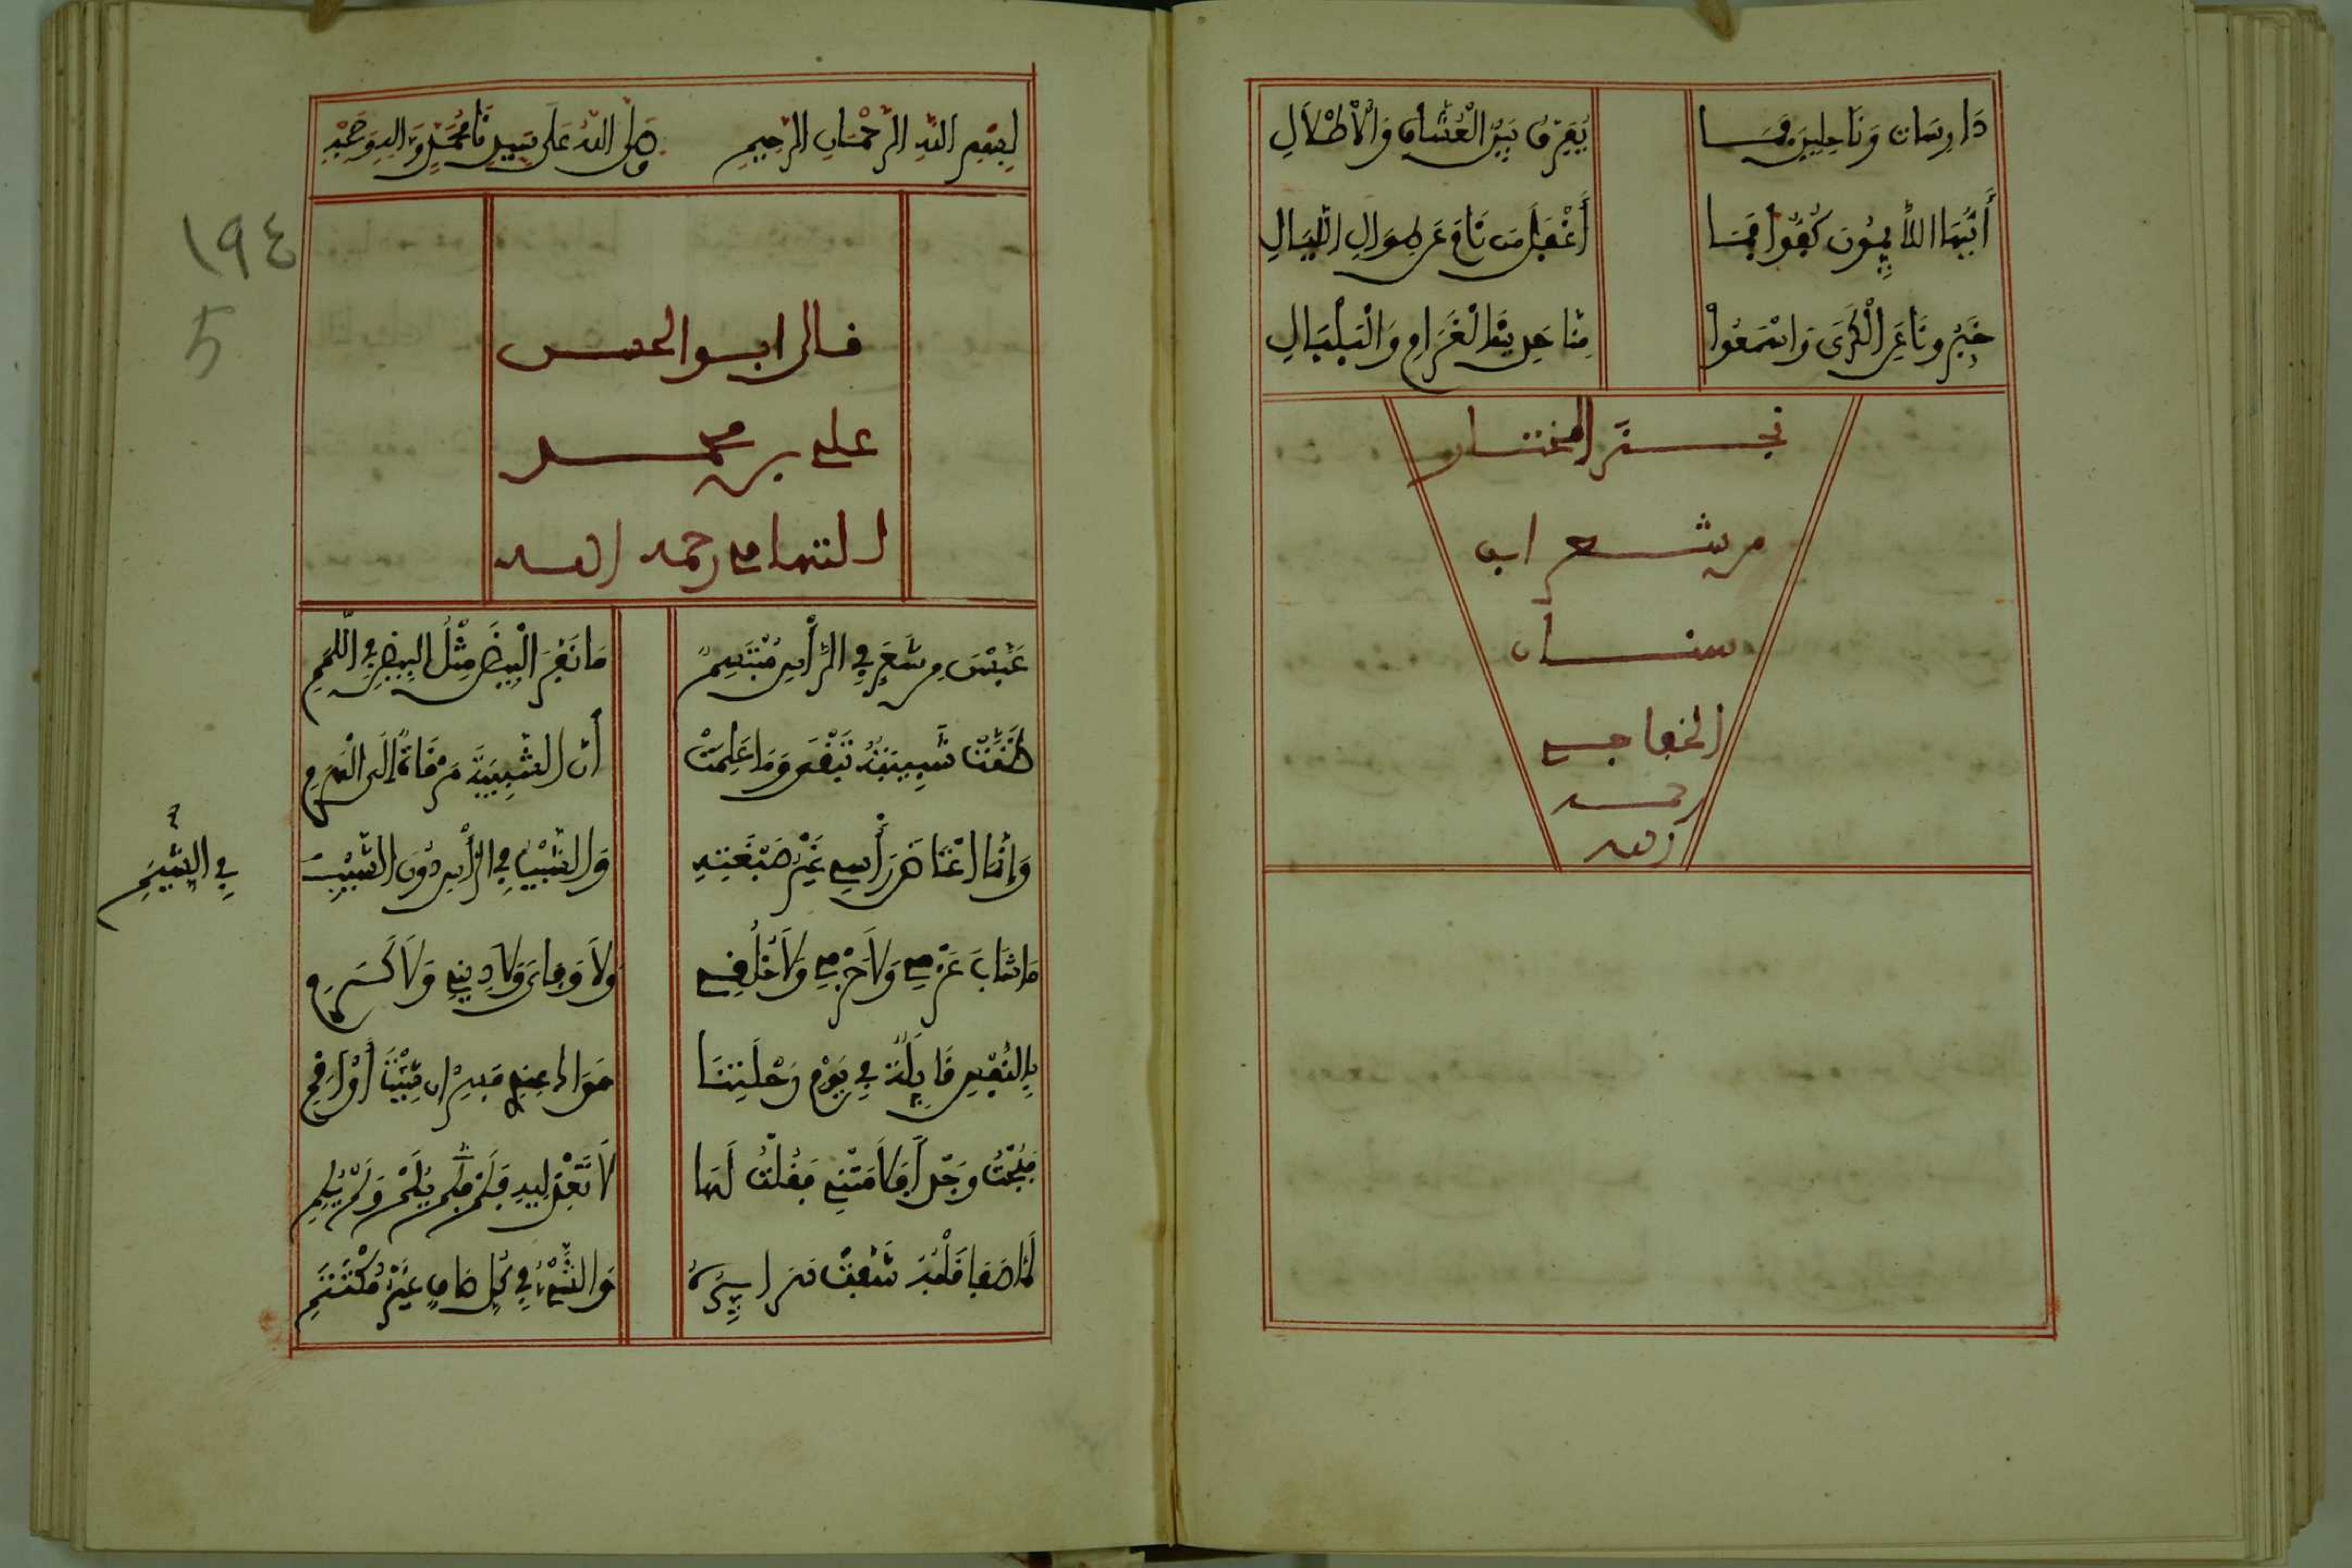 دَارِسَات وَنَاحِلِينَ فَمَا يُفَرَّقُ بَيْنَ الْعُشَّاقِ وَالْأَطْلَالِ
أَيُّهَا اللَّائِمُونَ كُفُّوا فَمَا أَغْفَلَ مَن نَامَ عَن طِوَالِ اللَّيَالِ
خَبِّرُونَا عَنِ الْكَرَى وَاسْمَعُوا مِنَّا حَدِيثَ الْغَرَامِ وَالْبَلْبَالِ
نجز المختار
من شعر ابن
سنان
الخفاجي
رحمه
الله
بِسْمِ اللهِ الرَّحْمَانِ الرَّحِيمِ وَصَلَّى اللهُ عَلَى سَيِّدِنَا مُحَمَّدٍ وَآلِهِ وَصَحْبِهِ
١٩٤
5
قال ابو الحسن
علي بن محمد
التهامي رحمه الله
عَبَسْنَ مِن شَعَرٍ فِي الرَّأْسِ مُبْتَسِمٍ مَا نَفَّرَ الْبِيضَ مِثْلُ الْبِيضِ فِي اللِّمَمِ
ظَنَّتْ شَبِيبَتَهُ تَبْقَى وَمَا عَلِمَتْ أَنَّ الشَّبِيبَةَ مَرْقَاةٌ إِلَى الْهَرَمِ
وَإِنَّمَا اعْتَاضَ رَأْسِي غَيْرَ صَبْغَتِهِ وَالشَّيْبُ فِي الرَّأْسِ دُونَ الشَّيْبِ
فِي الشِّيَمِ
مَا شَابَ عَزْمِي وَلَا حَزْمِي وَلَا خُلُقِي وَلَا وَفَاءى وَلَا دِينِي وَلَا كَرَمِي
فَبُحْتُ وَجْداً فَلَامَتْنِي فَقُلْتُ لَهَا لَا تَعْذُلِيهِ فَلَمْ يُلْمِمْ وَلَمْ يُلِمِ
لَمَّا صَفَا قَلْبُهُ شَفَّتْ سَرَايِرُهُ وَالشَّيْءُ فِي كُلِّ صَافٍ غَيْرُ مُكْتَتَمِ